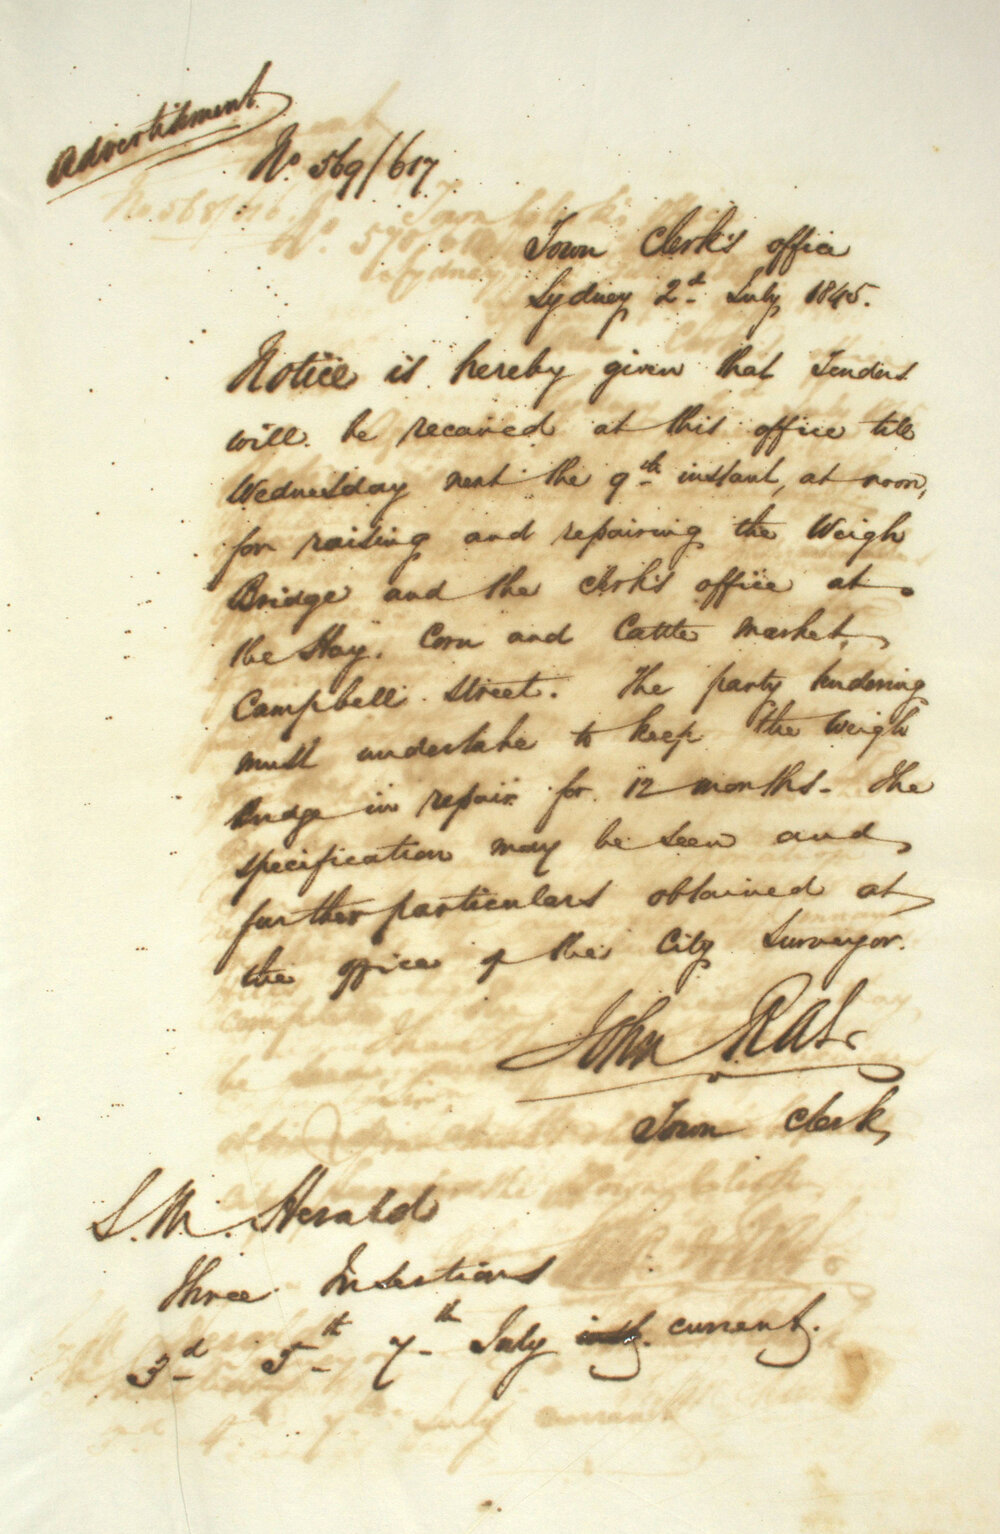 Advertisment
No. 569/617
Town Clerk's office
Sydney 2d July 1845.
Notice is hereby given that Tenders
will be received at this office till
Wednesday next the 9th instant, at noon,
for raising and repairing the Weigh
Bridge and the Clerk's office at
the Hay, Corn and Cattle Market,
Campbell Street. The party tendering
must undertake to keep the Weigh
Bridge in repair for 12 months. The
specification may be seen and
further particulars obtained at
the office of the City Surveyor.
John Rae
Town Clerk
S. M. Herald
Three Insertions
3d 5th 7th July current.